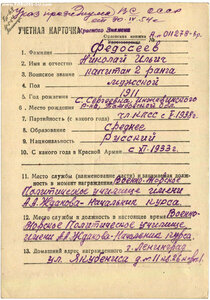 Указ президиума ВС СССР
от 30.IV.54г.
УЧЕТНАЯ КАРТОЧКА Красного Знамени
№ 011278-бр.
1. Фамилия Федосеев
2. Имя и отчество Николай Ильич
3. Воинское звание капитан 2 ранга
4. Пол мужской
5. Год рождения 1911
6. Место рождения с. Сергеевка,
7. чл. КПСС с 1938г.
8. Образование среднее
9. Национальность Русский
10. С какого года в Красной Армии с XI-1933г.
11. Место службы (наименование части) и занимаемая должность в момент награждения Военно-Морское
Политическое училище имени
А.А. Жданова - Начальник курса.
12. Место службы и должность в настоящее время Военно-
Морское Политическое училище
имени А.А. Жданова - Начальник курса.
13. Домашний адрес награжденного г. Ленинград
ул.